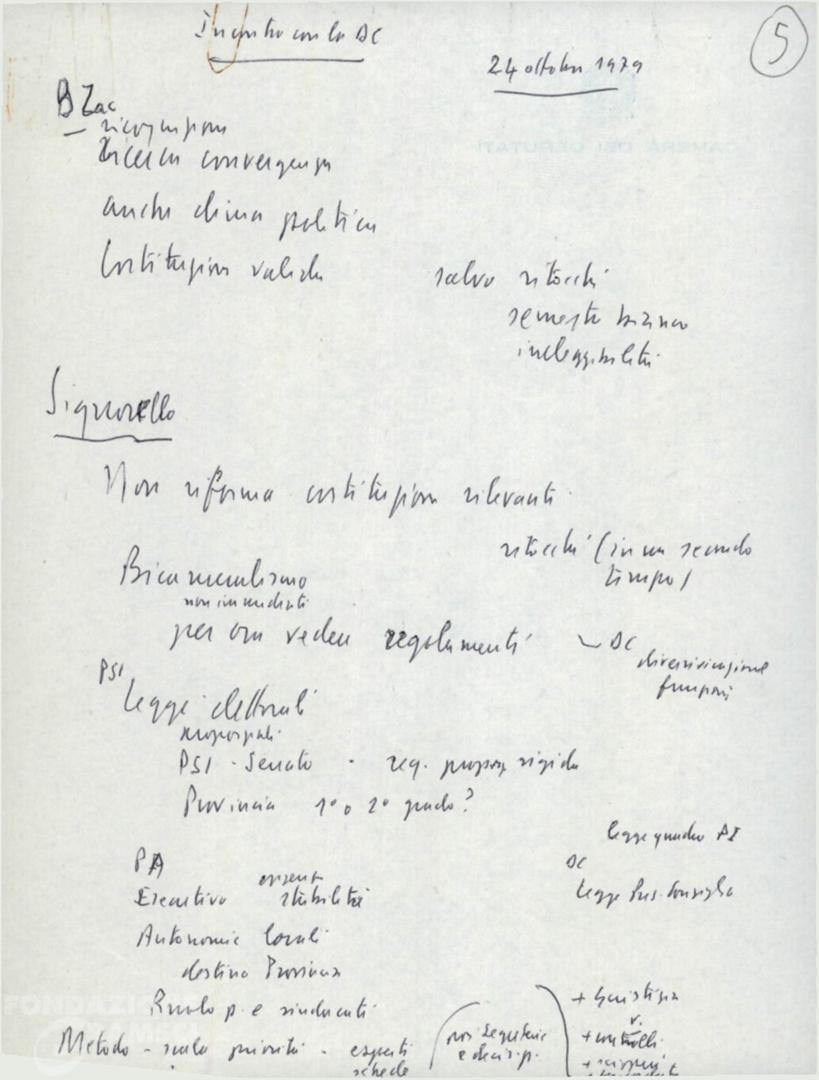 Incontro con la DC
5
24 ottobre 1979
B Zac
ricognizione
ricerca convergenza
anche clima politico
Costituzione valida
salvo ritocchi
semestre bianco
ineleggibilità
Signorello
Non riforma costituzione rilevanti
ritocchi (in un secondo
tempo)
Bicameralismo
non immediati
per ora vedere regolamenti
DC
diversificazione
funzioni
PSI
Legge elettorali
PSI - Senato - reg. proporz rigida
Provincia 1° o 2° grado?
legge quadro PI
PA
DC
Esecutivo stabilità
legge Pres. Consiglio
Autonomie locali
destino Provincia
Ruolo p. e sindacati
+ Giustizia
+ controlli
Metodo - scala priorità - esperti
schede
CAMERA DEI DEPUTATI
FONDAZI